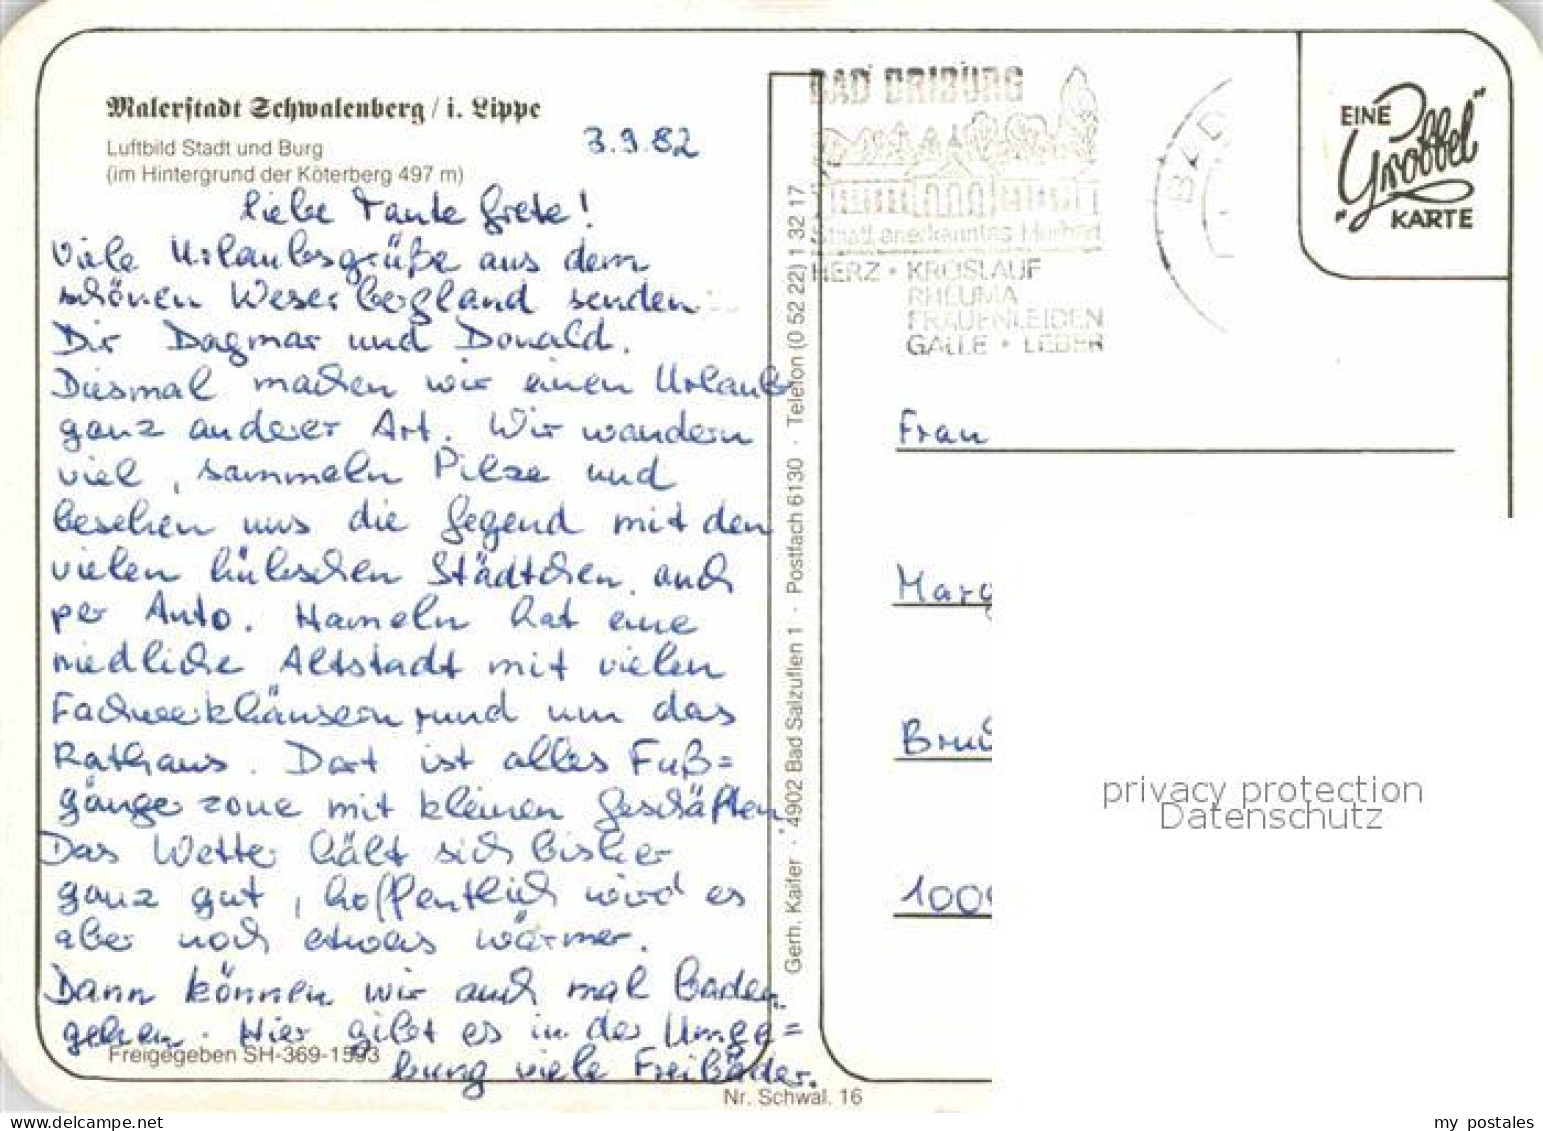 Malerstadt Schwalenberg / i. Lippe
Luftbild Stadt und Burg
(im Hintergrund der Köterberg 497 m)
3.9.82
liebe Tante Grete!
Viele Urlaubsgrüße aus dem
schönen Weserbergland senden
Dir Dagmar und Donald.
Diesmal machen wir einen Urlaub
ganz anderer Art. Wir wandern
viel, sammeln Pilze und
besehen uns die Gegend mit den
vielen hübschen Städtchen auch
per Auto. Hameln hat eine
niedliche Altstadt mit vielen
Fachwerkhäusern rund um das
Rathaus. Dort ist alles Fuß=
gängerzone mit kleinen Geschäften.
Das Wetter hält sich bisher
ganz gut, hoffentlich wird es
aber noch etwas wärmer.
Dann können wir auch mal baden
gehen. Hier gibt es in der Umge=
bung viele Freibäder.
Freigegeben SH-369-1593
Nr. Schwal. 16
Gerh. Kaifer · 4902 Bad Salzuflen 1 · Postfach 6130 · Telefon (0 52 22) 1 32 17
BAD DRIBURG
Staatl. anerkanntes Heilbad
HERZ • KREISLAUF
RHEUMA
FRAUENLEIDEN
GALLE • LEBER
BAD
EINE
"Grobbel"
KARTE
Frau
Marg
Brü
100
privacy protection
Datenschutz
my postales